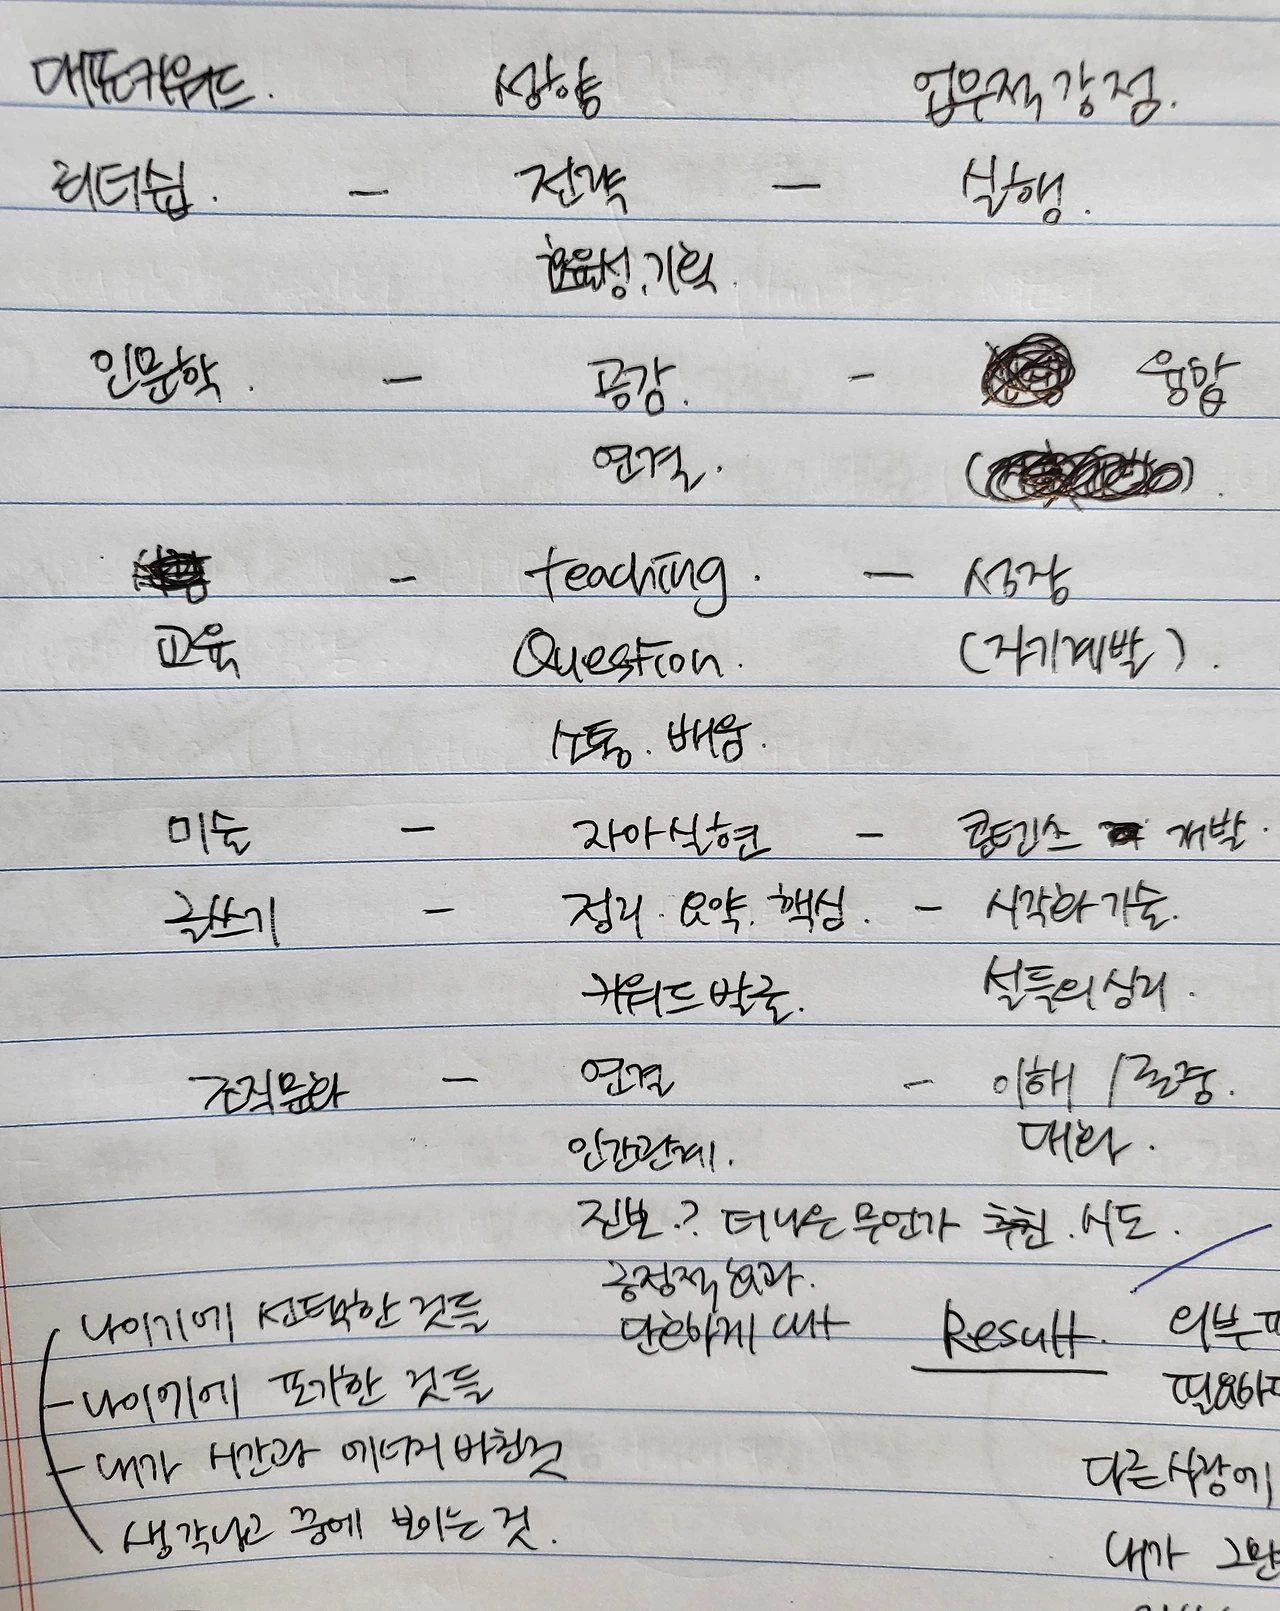 대표키워드. 성향 업무적 강점.
리더쉽. - 전략 - 실행.
효율성, 기획.
인문학. - 공감. - 융합
연결.
- teaching. - 성장
교육 Question. (자기계발).
소통. 배움.
미술 - 자아실현 - 콘텐츠 개발.
글쓰기 - 정리. 요약. 핵심. - 시각화 기술.
키워드 발굴. 설득의 심리.
조직문화 - 연결 - 이해 / 존중.
인간관계. 대화.
진보.? 더 나은 무언가 추천. 시도.
긍정적 효과.
나이기에 선택한 것들 단호하게 cut Result. 외부
- 나이기에 포기한 것들 필요하
- 내가 시간과 에너지 바친것 다른사람에
생각나고 꿈에 보이는 것. 내가 그만